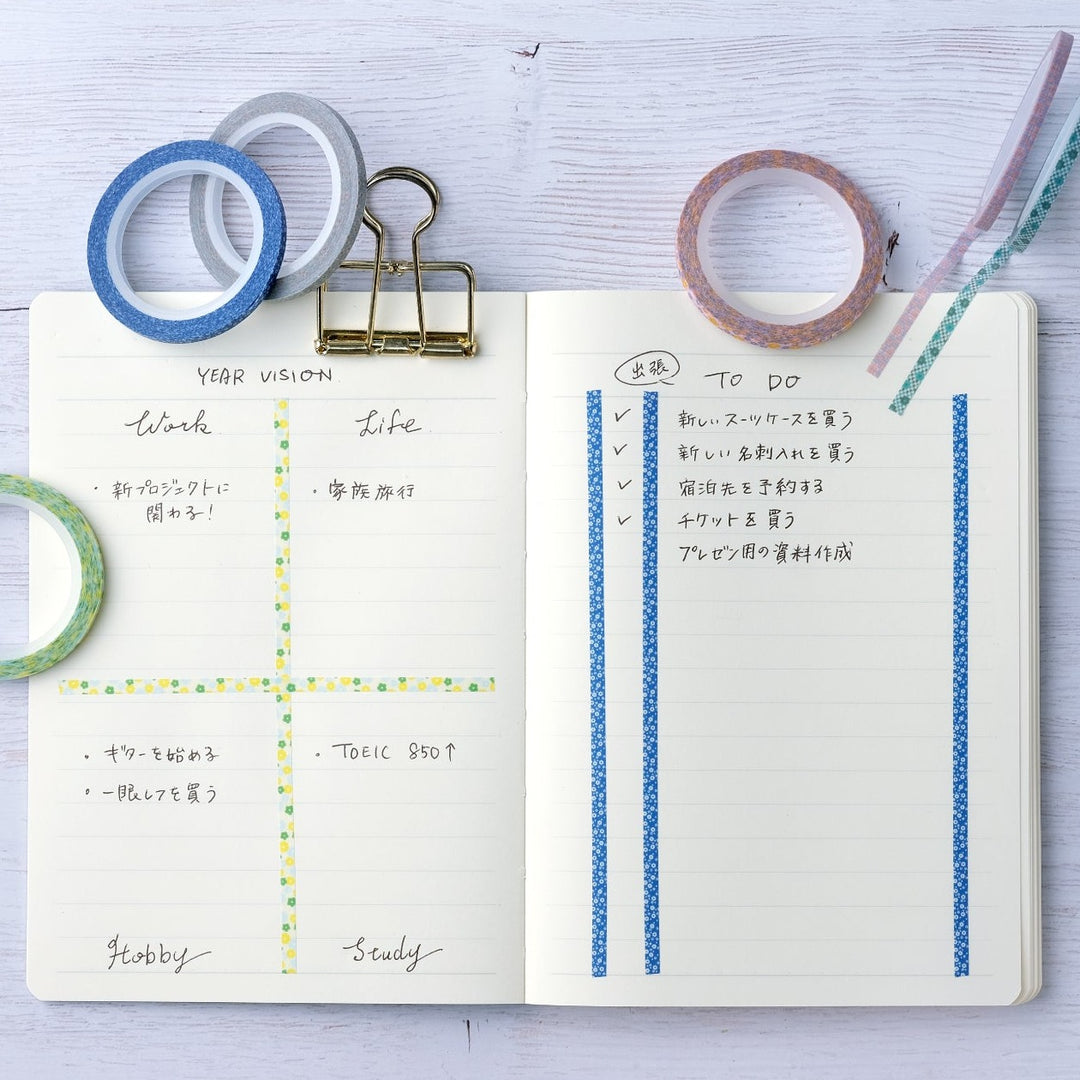 YEAR VISION
Work
・新プロジェクトに
関わる!
Life
・家族旅行
・ギターを始める
・一眼レフを買う
Hobby
・TOEIC 850↑
Study
出張
TO DO
✓ 新しいスーツケースを買う
✓ 新しい名刺入れを買う
✓ 宿泊先を予約する
✓ チケットを買う
プレゼン用の資料作成